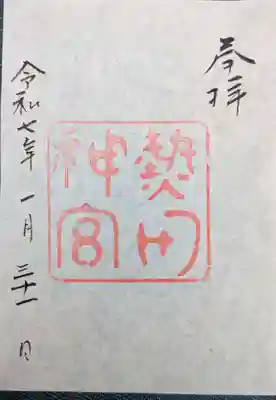 奉拝
熱田
神宮
令和七年一月三十一日